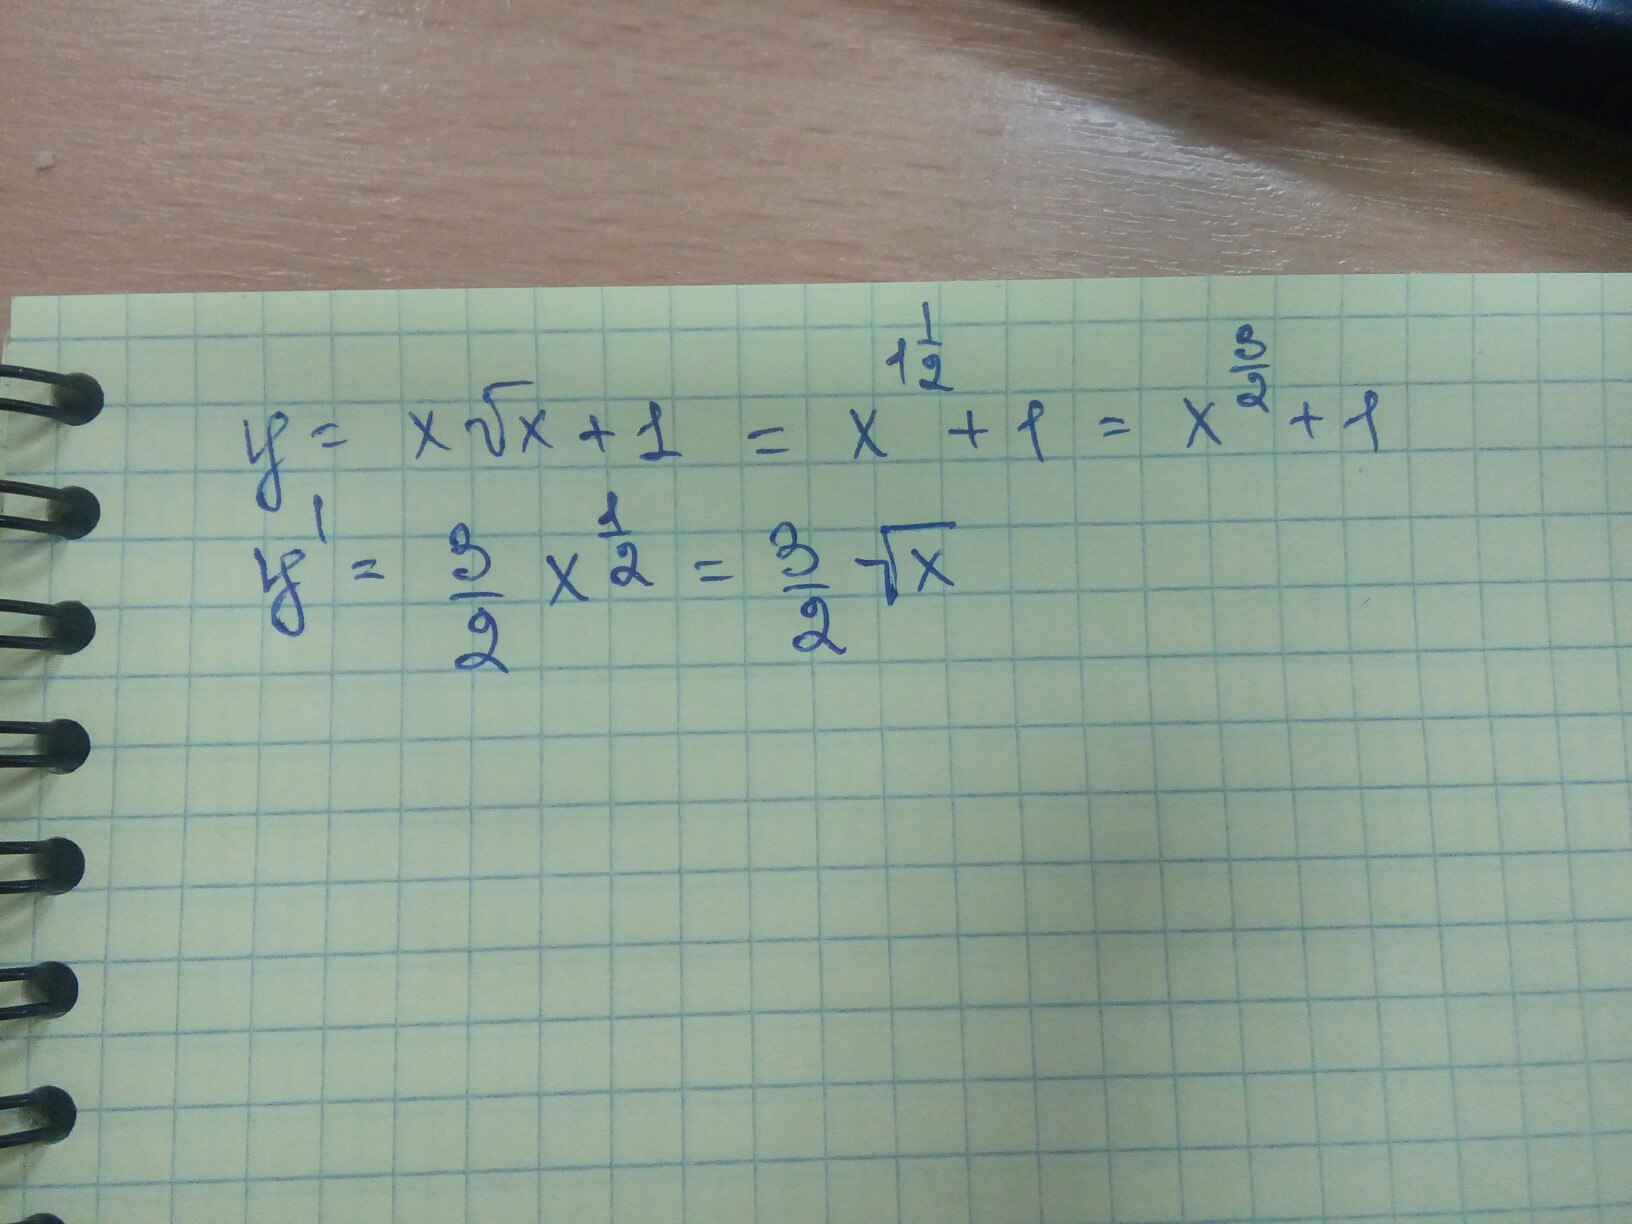 y = x√x + 1 = x^{1\frac{1}{2}} + 1 = x^{\frac{3}{2}} + 1
y' = \frac{3}{2} x^{\frac{1}{2}} = \frac{3}{2} √x